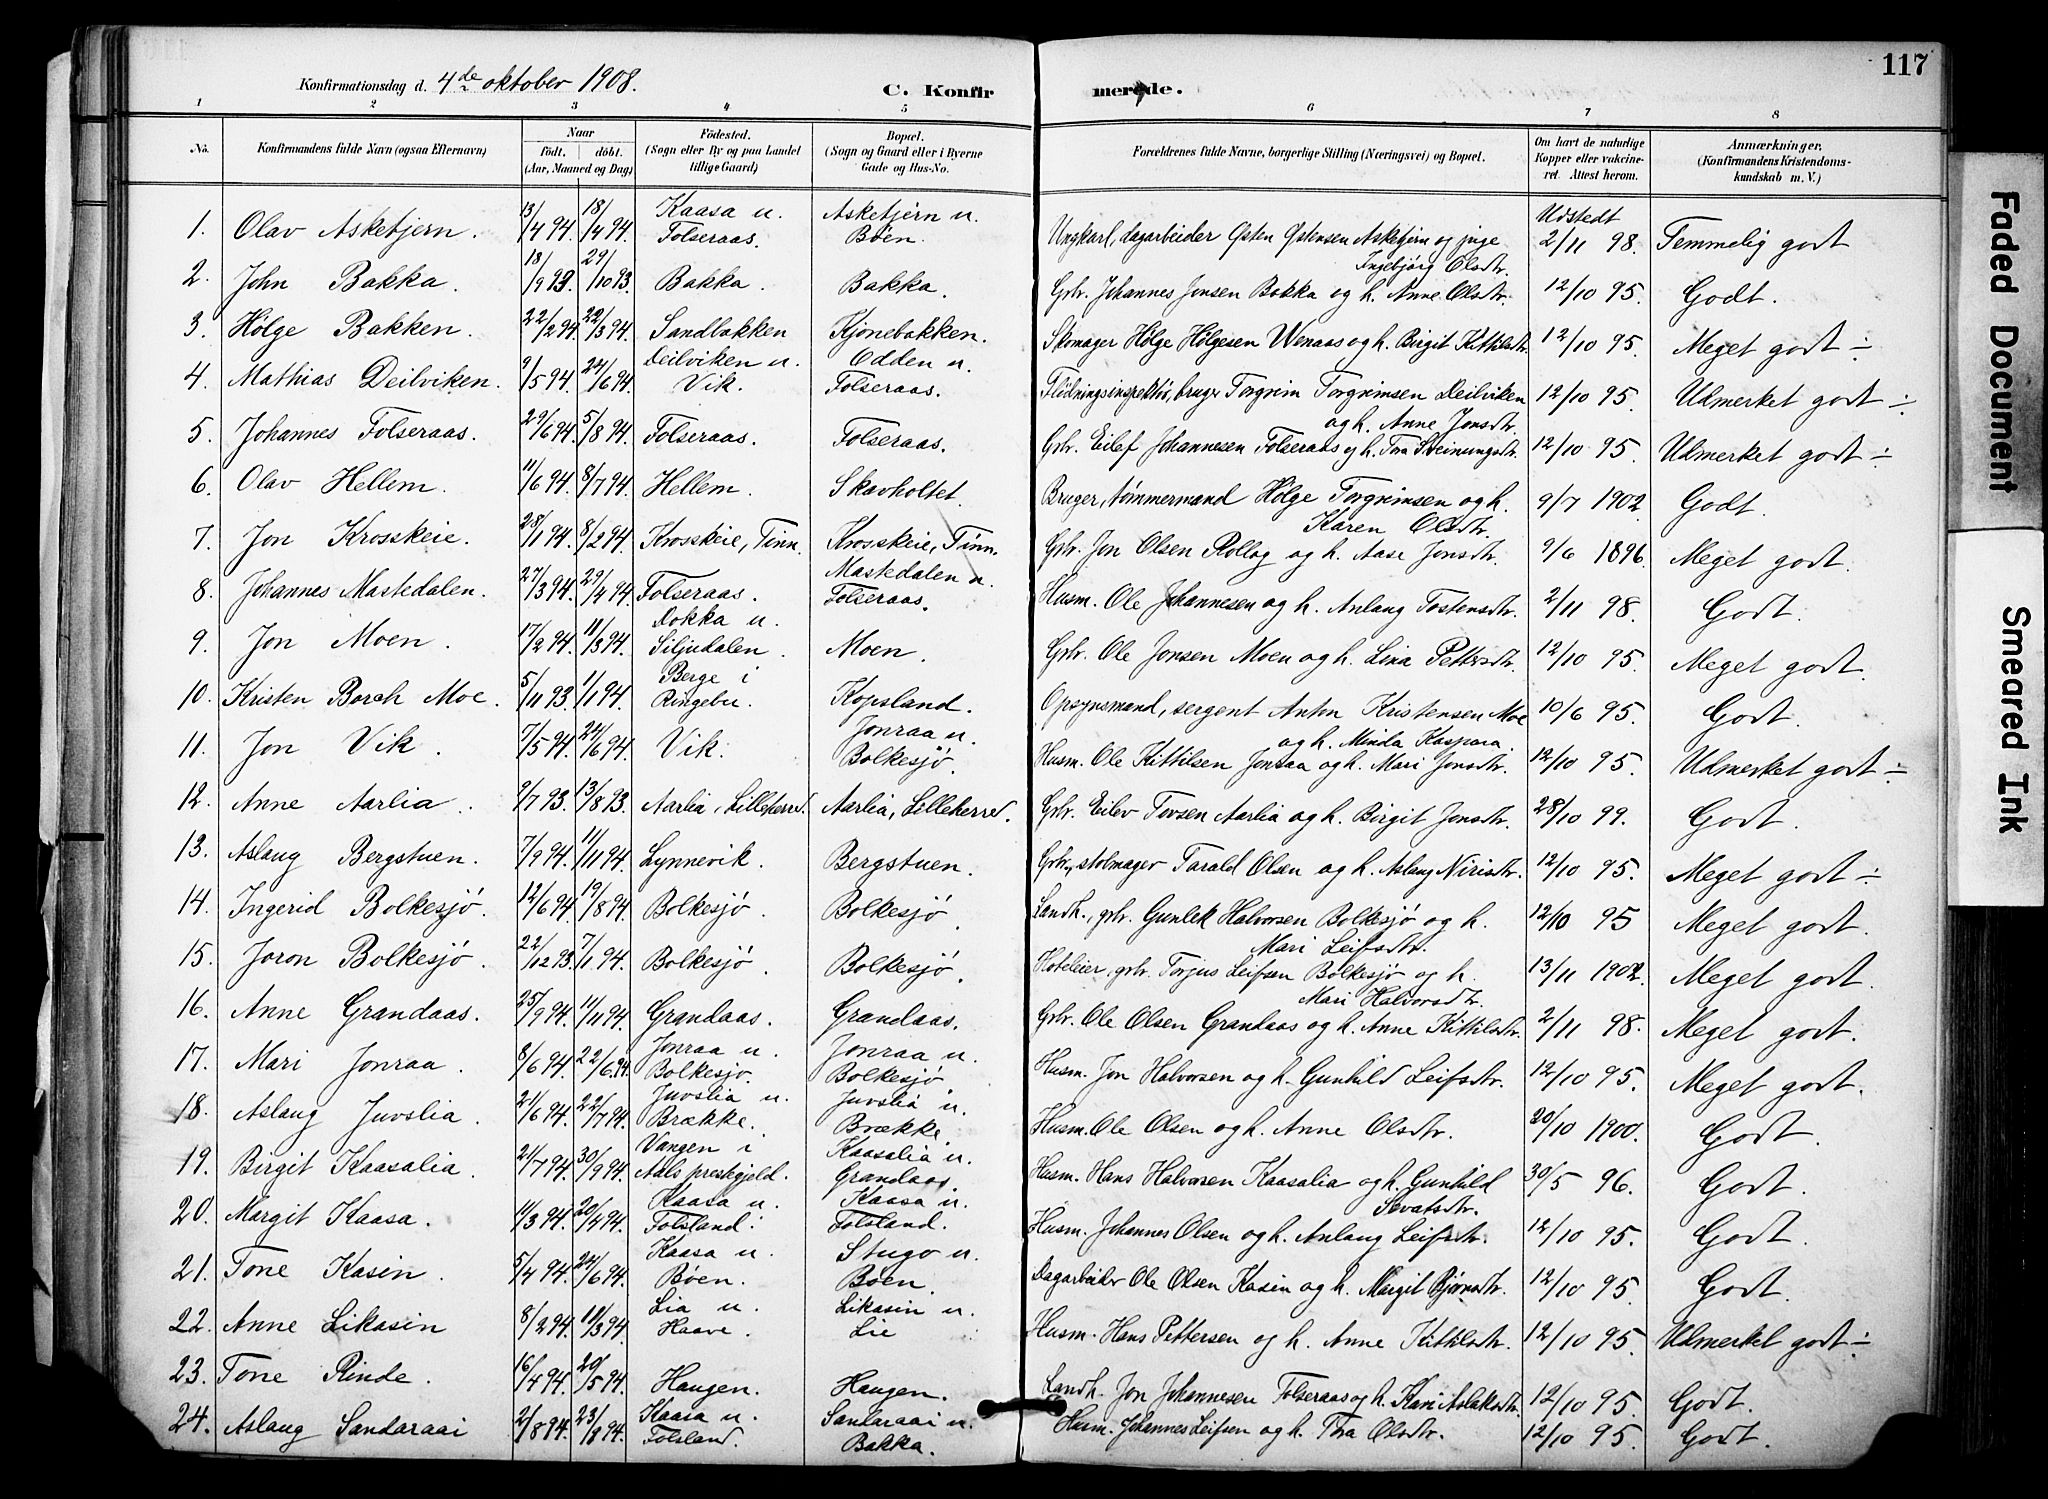 117
Konfirmationsdag d. 4de oktober 1908.
C. Konfirmerede.
1 2 3 4 5 6 7 8
No. Konfirmandens fulde Navn (ogsaa Efternavn) Naar födt. döbt. (Aar, Maaned og Dag) Födested. (Sogn eller By og paa Landet tillige Gaard) Bopæl. (Sogn og Gaard eller i Byerne Gade og Hus-No. Forældrenes fulde Navne, borgerlige Stilling (Næringsvei) og Bopæl. Om havt de naturlige Kopper eller vaccineret. Attest herom. Anmærkninger. (Konfirmandens Kristendomskundskab m. V.)
1. Olav Askebjern. 13/4 94. 18/4 94. Kaasa u. Folseraas. Askebjern u. Böen. Ungkarl, dagarbeider Östen Östensen Askebjern og pige Ingebjörg Olsdtr. Udstedt 2/11 98. Temmelig godt
2. John Bakka. 18/9 93. 29/10 93. Bakka. Bakka. Grbr. Johannes Jonsen Bakka og h. Anne Olsdtr. 12/10 95. Godt.
3. Hölge Bakken. 22/2 94. 22/3 94. Sandbakken Kjonebakken. Skomager Hölge Hölgesen Wenaas og h. Birgit Kittilsdtr. 12/10 95. Meget godt ÷
4. Mathias Deilviken. 9/5 94. 24/6 94. Deilviken u. Vik. Odden u. Folseraas. Flödningsinspektör, bruger Torgrim Torgrimsen Deilviken og h. Anne Jonsdtr. 12/10 95. Udmerket godt ÷
5. Johannes Folseraas. 29/6 94. 5/8 94. Folseraas. Folseraas. Grbr. Eilef Johannesen Folseraas og h. Tora Sveinungsdtr. 12/10 95. Udmerket godt ÷
6. Olav Hellem. 11/6 94. 8/7 94. Hellem. Skavholtet. Bruger, tömmermand Hölge Torgrimsen og h. Karen Olsdtr. 9/7 1902. Godt.
7. Jon Krosskeie. 28/1 94. 8/2 94. Krosskeie, Tinn. Krosskeie, Tinn. Grbr. Jon Olsen Rollag og h. Aase Jonsdtr. 9/6 1896. Meget godt.
8. Johannes Mastedalen. 27/3 94. 29/4 94. Folseraas. Mastedalen u. Folseraas. Husm. Ole Johannesen og h. Anlaug Tostensdtr. 2/11 98. Godt.
9. Jon Moen. 17/2 94. 11/3 94. Dokka u. Siljudalen. Moen. Grbr. Ole Jonsen Moen og h. Lina Pettersdtr. 12/10 95. Meget godt.
10. Kristen Borch Moe. 5/11 93. 1/1 94. Berge i Ringebu. Kopsland. Opsynsmand, sergent Anton Kristensen Moe og h. Minda Kaspara. 10/6 95. Godt.
11. Jon Vik. 7/5 94. 24/6 94. Vik. Jonraa u. Bolkesjö. Husm. Ole Kittilsen Jonraa og h. Mari Jonsdtr. 12/10 95. Udmerket godt ÷
12. Anne Aarlia. 9/7 93. 13/8 93. Aarlia, Lilleherred. Aarlia, Lilleherred. Grbr. Eilev Tovsen Aarlia og h. Birgit Jonsdtr. 28/10 99. Godt.
13. Aslaug Bergstuen. 7/9 94. 11/11 94. Lynnevik. Bergstuen. Grbr., stolmager Tarald Olsen og h. Aslaug Nirisdtr. 12/10 95. Meget godt ÷
14. Ingerid Bolkesjö. 12/6 94. 19/8 94. Bolkesjö. Bolkesjö. Landh., grbr. Gunlek Halvorsen Bolkesjö og h. Mari Leifsdtr. 12/10 95 Meget godt.
15. Joron Bolkesjö. 22/12 93. 7/1 94. Bolkesjö. Bolkesjö. Hoteleier, grbr. Torjus Leifsen Bolkesjö og h. Mari Halvorsdtr. 13/11 1902. Meget godt.
16. Anne Grandaas. 25/9 94. 11/11 94. Grandaas. Grandaas. Grbr. Ole Olsen Grandaas og h. Anne Kittilsdtr. 2/11 98. Meget godt.
17. Mari Jonraa. 8/6 94. 22/6 94. Jonraa u. Bolkesjö. Jonraa u. Bolkesjö. Husm. Jon Halvorsen og h. Gunhild Leifsdtr. 12/10 95. Meget godt.
18. Aslaug Juvslia. 21/6 94. 22/7 94. Juvslia u. Brække. Juvslia u. Brække. Husm. Ole Olsen og h. Anne Olsdtr. 20/10 1900. Godt.
19. Birgit Kaasalia. 21/7 94. 30/9 94. Vangen i Aals prestegjeld. Kaasalia u. Grandaas. Husm. Hans Halvorsen Kaasalia og h. Gunhild Sevatsdtr. 30/5 96. Godt.
20. Margit Kaasa. 11/3 94. 20/4 94. Kaasa u. Folsland. Kaasa u. Folsland. Husm. Johannes Olsen og h. Anlaug Leifsdtr. 12/10 95. Godt.
21. Tone Kasin. 5/4 94. 24/6 94. Kaasa u. Böen. Stugo u. Böen. Dagarbeider Ole Olsen Kasin og h. Margit Bjørnsdtr. 12/10 95. Godt.
22. Anne Likasin 8/2 94. 11/3 94. Lia u. Haave. Likasin u. Lie Husm. Hans Pettersen og h. Anne Kittilsdtr. 12/10 95. Udmerket godt ÷
23. Tone Rinde. 16/4 94. 20/5 94. Haugen. Haugen. Landh. Jon Johannesen Folseraas og h. Kari Aslaksdtr. 12/10 95. Godt.
24. Aslaug Sandaraai 2/8 94. 23/9 94. Kaasa u. Folsland. Sandaraai u. Bakka. Husm. Johannes Leifsen og h. Tora Olsdtr. 12/10 95. Godt.
Faded Document
Smeared Ink